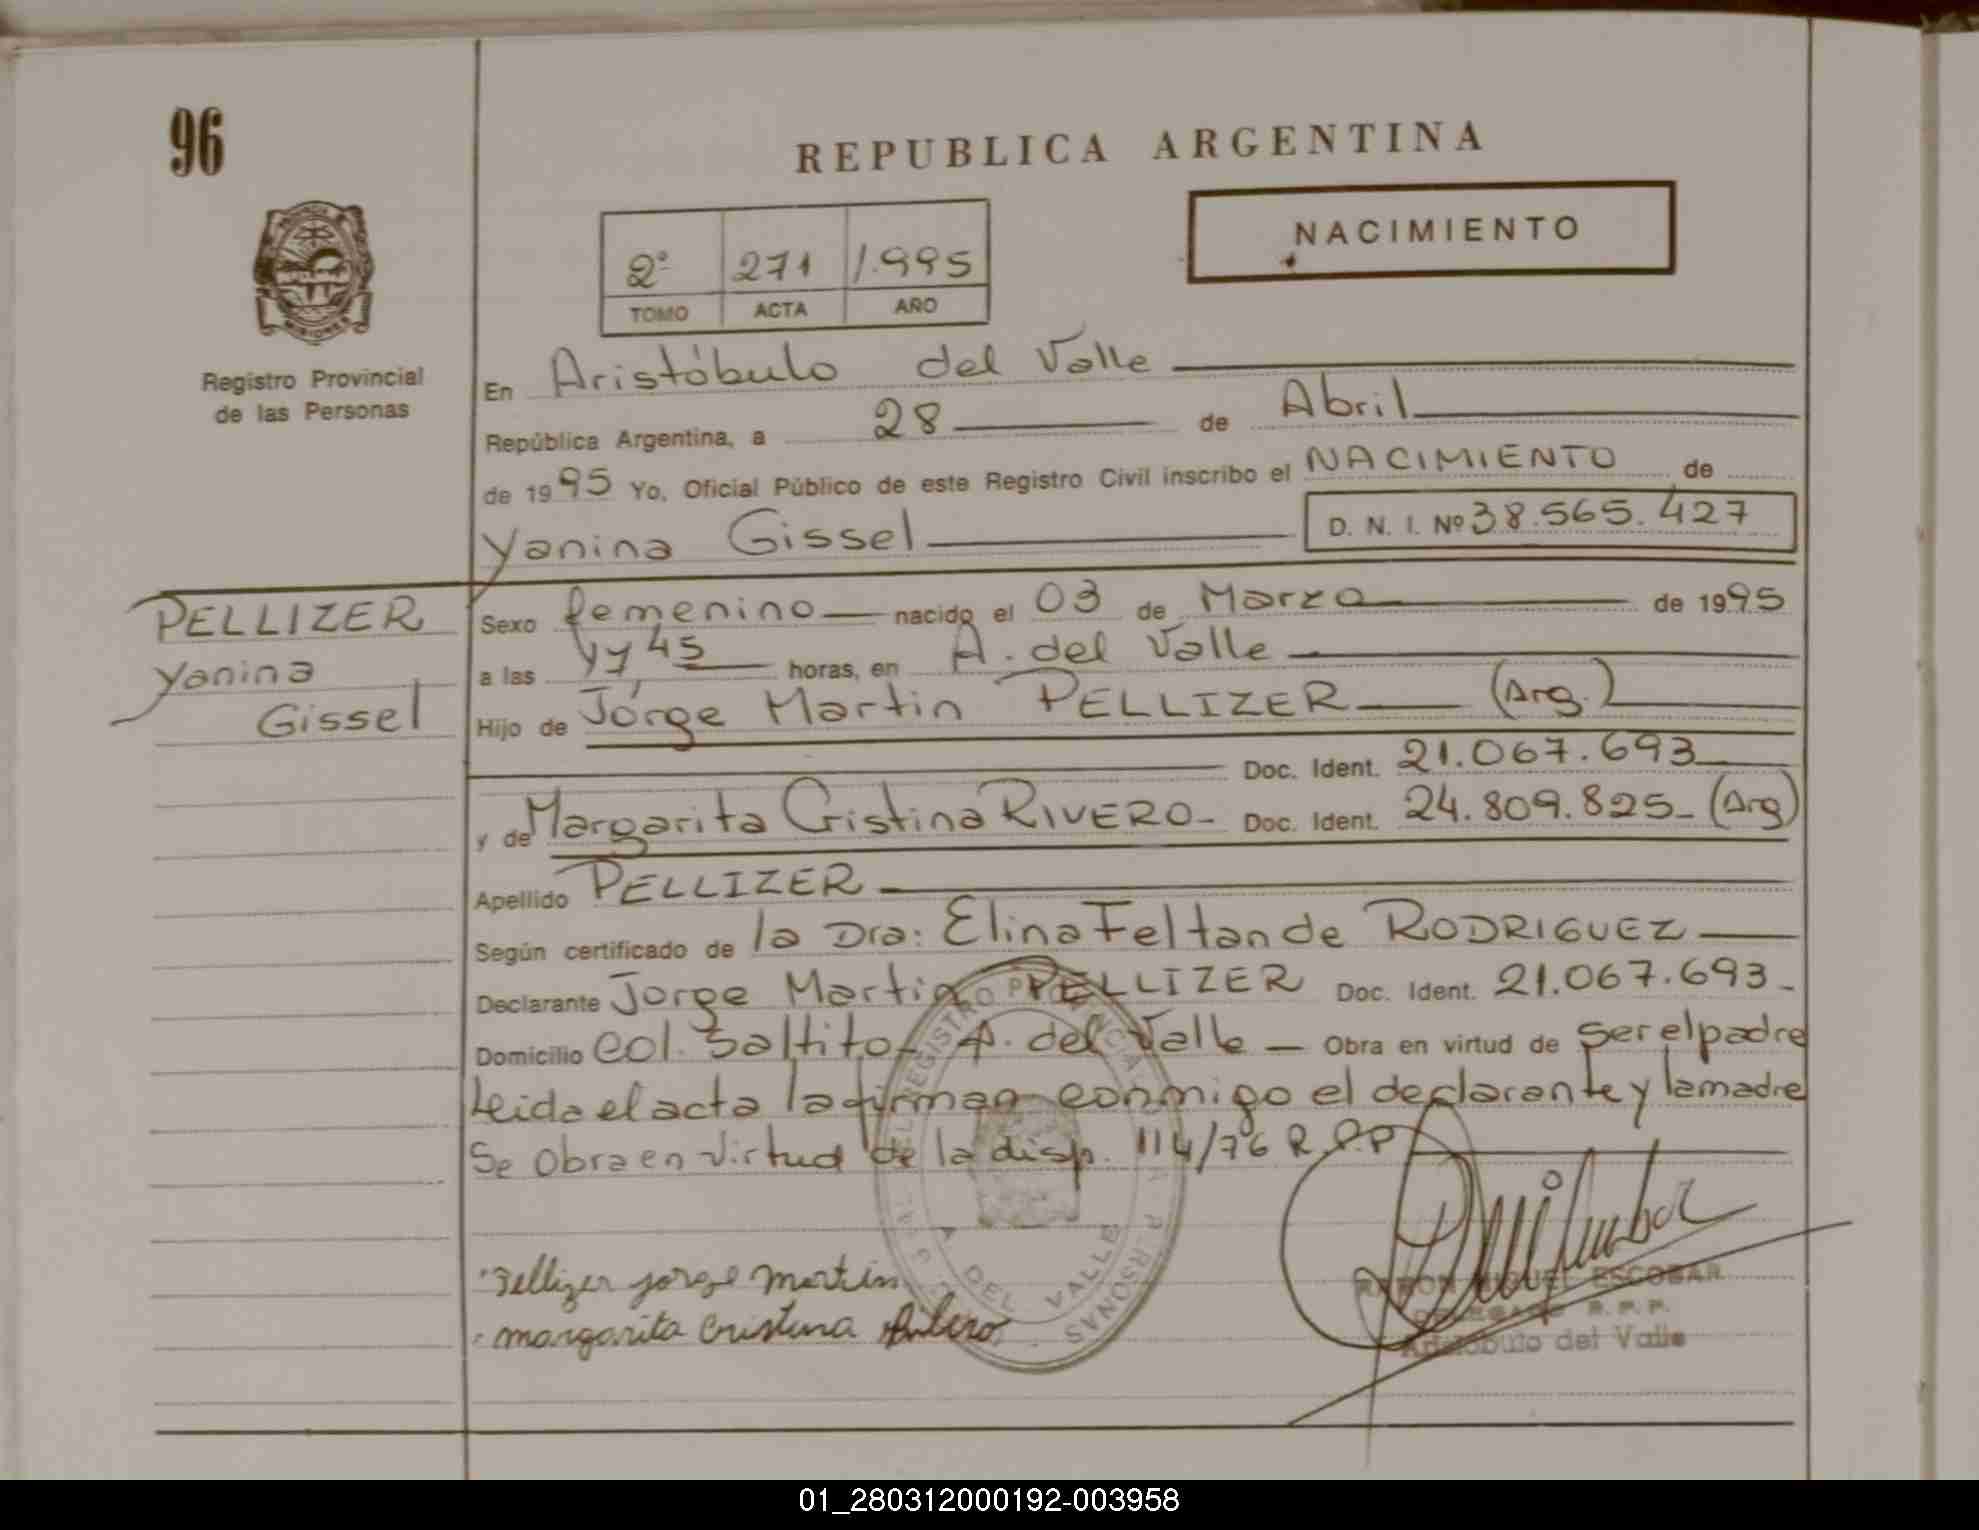 96
REPUBLICA ARGENTINA
NACIMIENTO
2º 271 1.995
TOMO ACTA AÑO
MISIONES
Registro Provincial
de las Personas
En Aristóbulo del Valle
República Argentina, a 28 de Abril
de 1995 Yo, Oficial Público de este Registro Civil inscribo el NACIMIENTO de
Yanina Gissel D. N. I. Nº 38.565.427
PELLIZER
Yanina
Gissel
Sexo femenino nacido el 03 de Marzo de 1995
a las 45 horas, en A. del Valle
Hijo de Jorge Martin PELLIZER (Arg.)
Doc. Ident. 21.067.693
y de Margarita Cristina RIVERO - Doc. Ident. 24.809.825 - (Arg)
Apellido PELLIZER
Según certificado de la Dra: Elina Feltan de RODRIGUEZ
Declarante Jorge Martin PELLIZER Doc. Ident. 21.067.693 -
Domicilio Col. Saltito - A. del Valle - Obra en virtud de ser el padre
Leida el acta la firman conmigo el declarante y la madre
Se Obra en virtud de la disp. 114/76 R.P.P
Pellizer Jorge Martin
margarita Cristina Rivero
A. DEL VALLE
RAMON MIGUEL ESCOBAR
DELEGADO R. P. P.
Aristóbulo del Valle
01_280312000192-003958